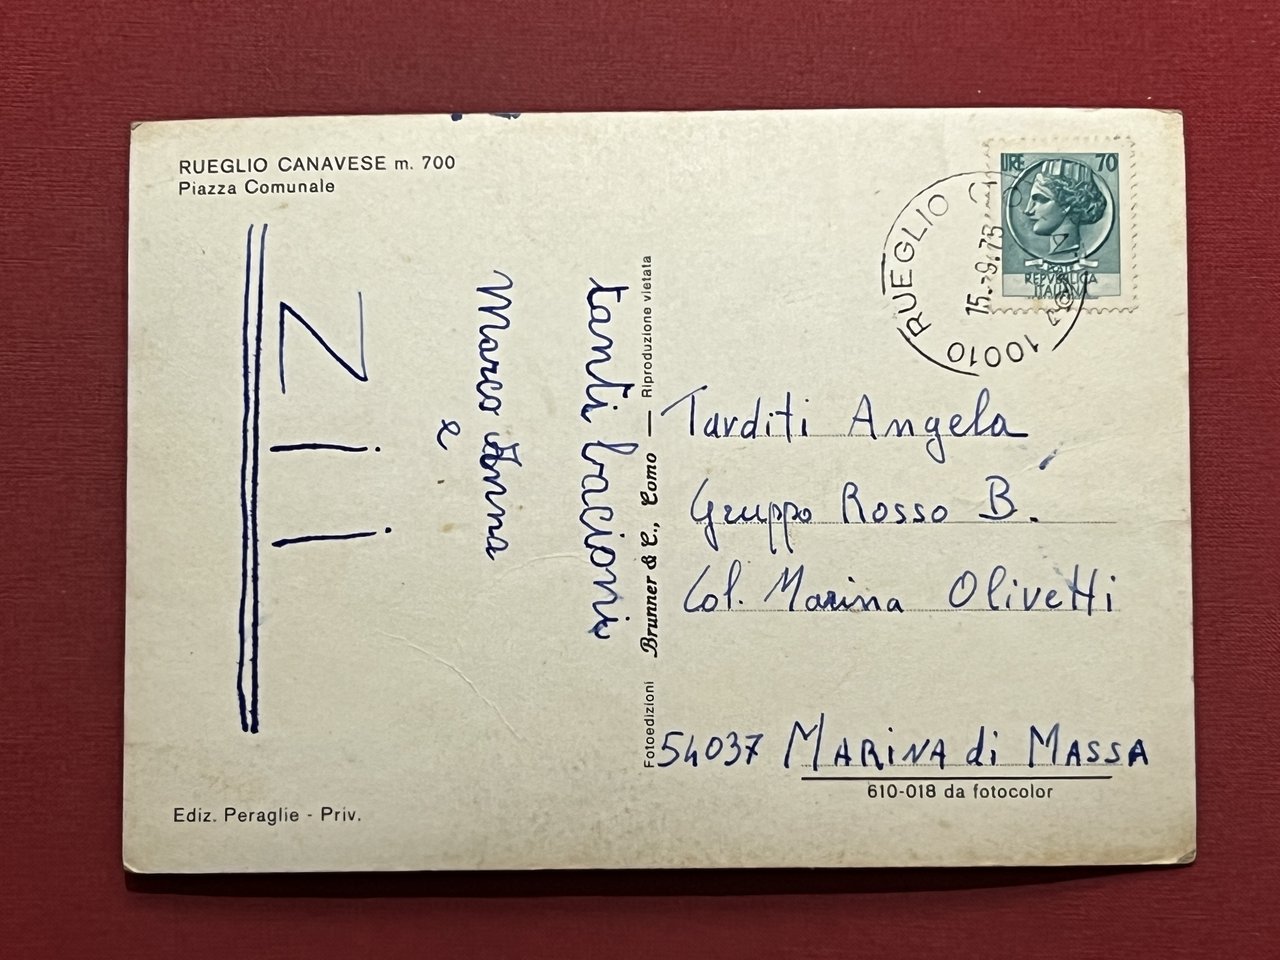 RUEGLIO CANAVESE m. 700
Piazza Comunale
tanti bacioni
Marco Anna
e
Zii
Ediz. Peraglie - Priv.
Fotoedizioni Brunner & C., Como — Riproduzione vietata
LIRE 70
POSTE
REPVBBLICA
ITALIANA
10010 RUEGLIO
15.-9.75
Tarditi Angela
Gruppo Rosso B.
Col. Marina Olivetti
54037 MARINA di MASSA
610-018 da fotocolor